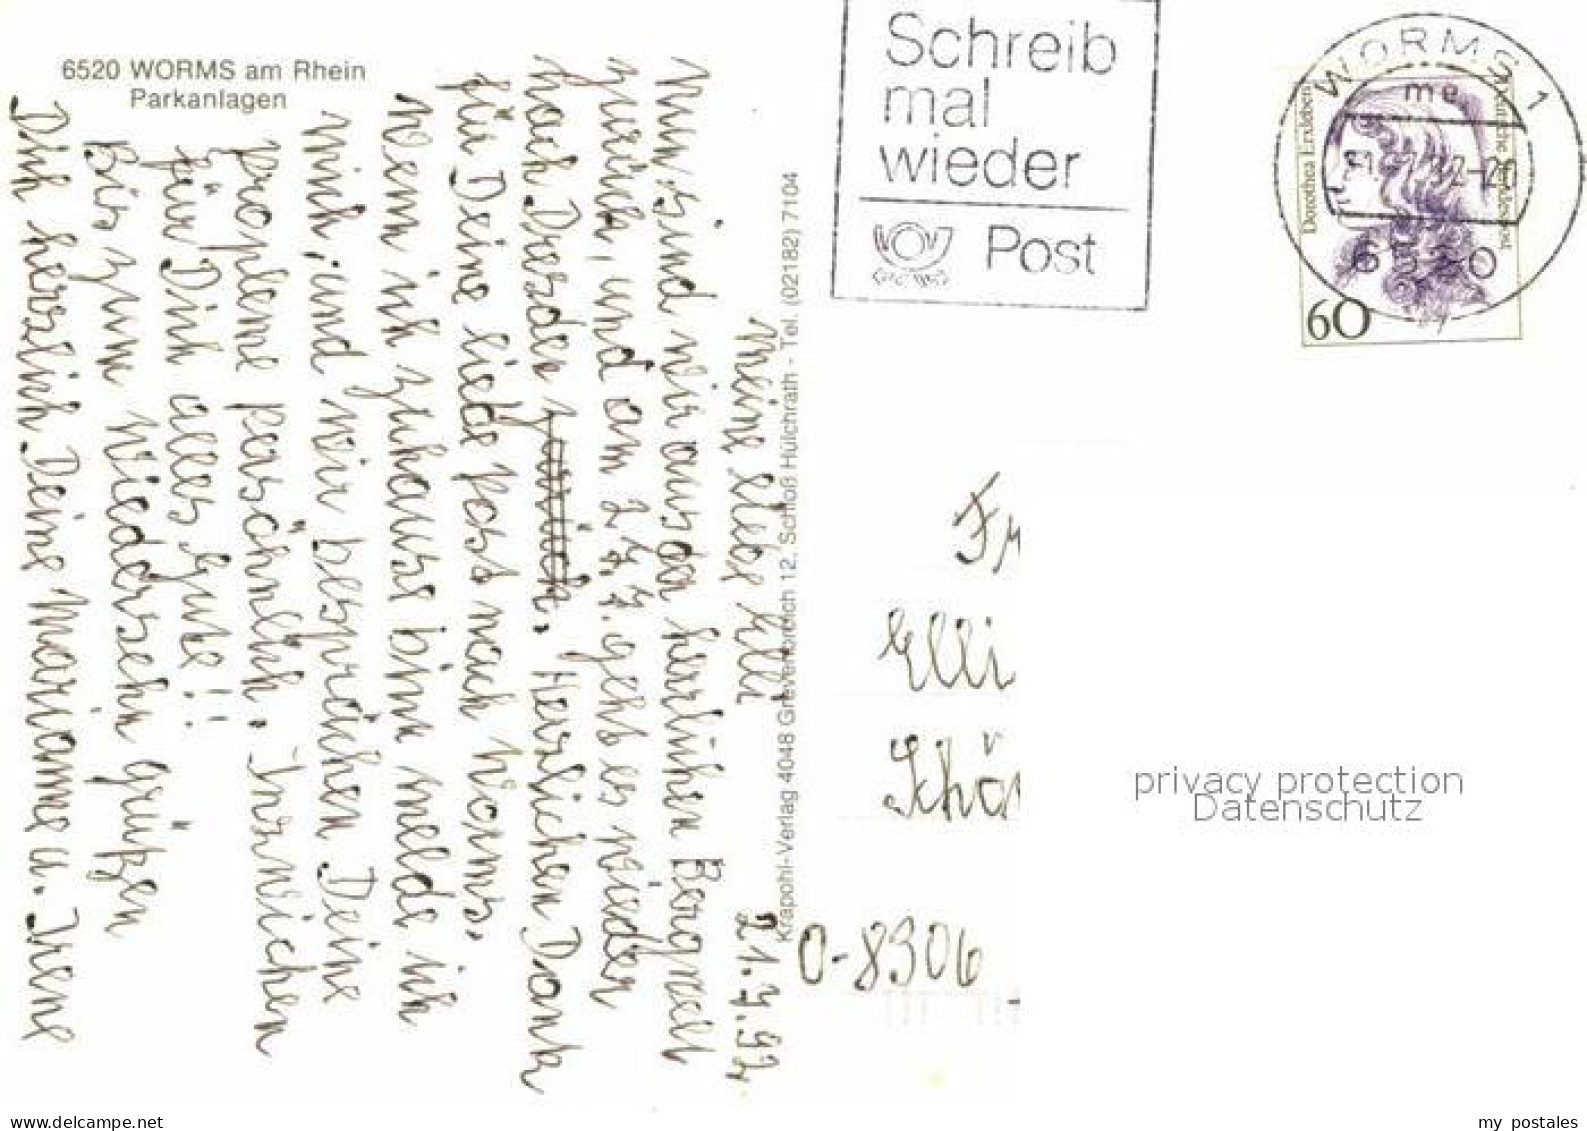 6520 WORMS am Rhein
Parkanlagen
Schreib
mal
wieder
Post
WORMS 1
me
Dorothea Erxleben
Deutsche Bundespost
60
21.7.92
Meine liebe Elli
Nun sind wir aus der herrlichen Bergwelt
zurück, und am 27.7. geht es wieder
nach Dresden zurück. Herzlichen Dank
für Deine liebe Post nach Worms.
Wenn ich zuhause bin melde ich
mich, und wir besprächen Deine
Probleme persönlich. Inzwichen
für Dich alles Gute!!
Bis zum Wiedersehn grüßen
Dich herzlich Deine Marianne u. Irene
Krapohl-Verlag 4048 Grevenbroich 12, Schloß Hülchrath - Tel. (02182) 7104
Fr
Elli
Schö
O-8306
privacy protection
Datenschutz
www.delcampe.net
my_postales